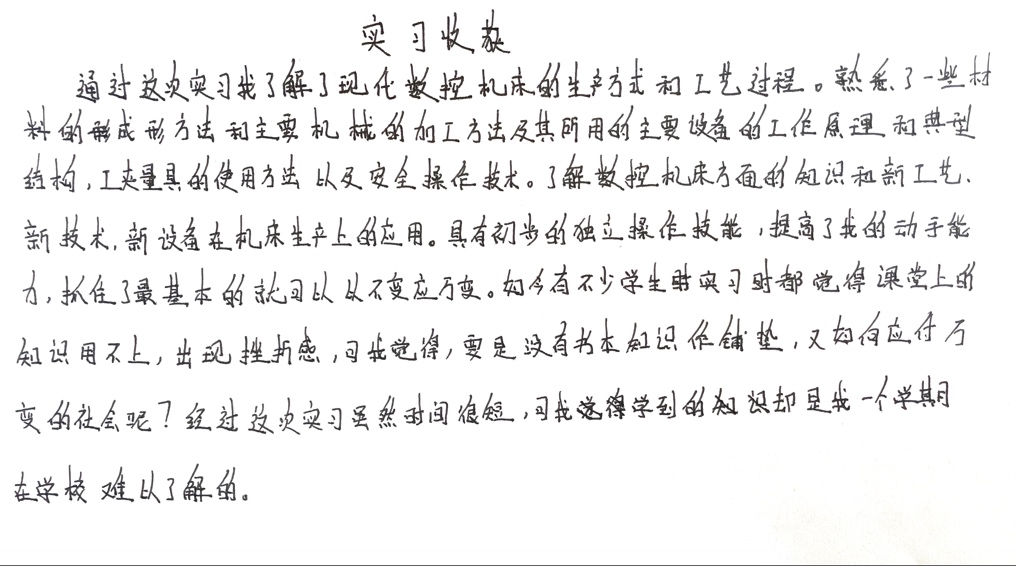 实习收获
通过这次实习我了解了现代数控机床的生产方式和工艺过程。熟悉了一些材
料的形成形方法和主要机械的加工方法及其所用的主要设备的工作原理和典型
结构,工夹量具的使用方法以及安全操作技术。了解数控机床方面的知识和新工艺、
新技术,新设备在机床生产上的应用。具有初步的独立操作技能,提高了我的动手能
力,抓住了最基本的就可以以不变应万变。如今有不少学生时实习时都觉得课堂上的
知识用不上,出现挫折感,可我觉得,要是没有书本知识作铺垫,又如何应付万
变的社会呢?经过这次实习虽然时间很短,可我觉得学到的知识却是我一个学期
在学校难以了解的。